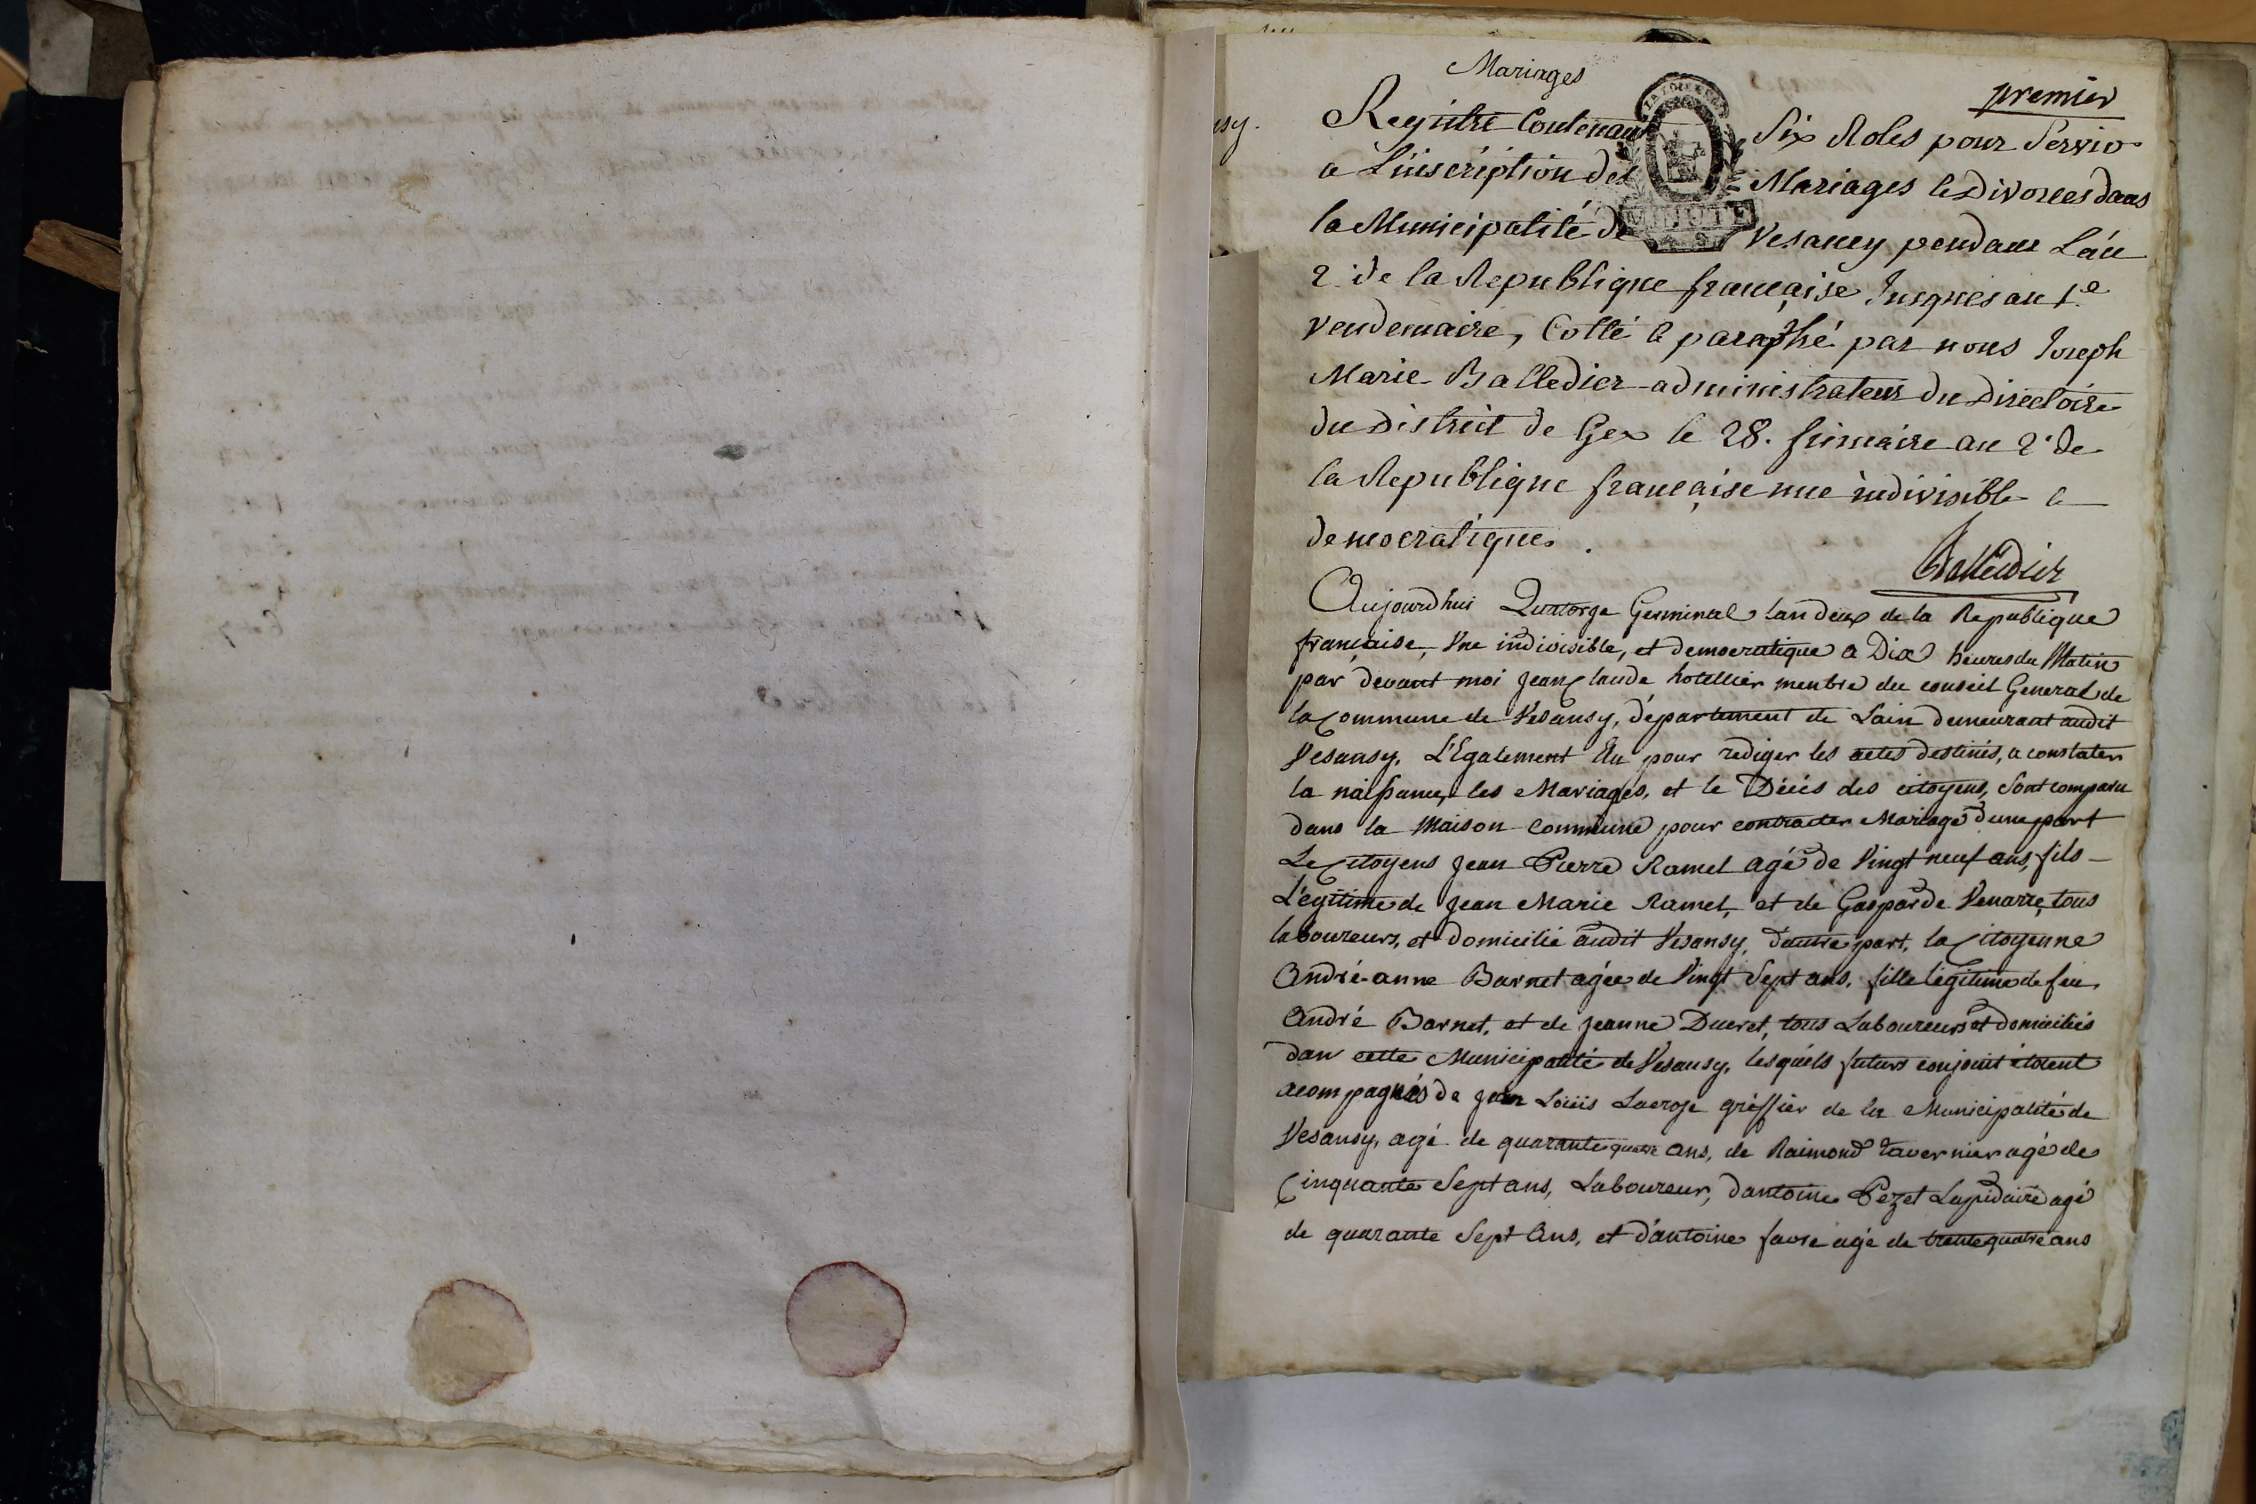 Mariages
premier
Registre Contenant Six Roles pour Servir
a L'inscription des Mariages & Divorces dans
la Municipalité de Vesancy pendant L'an
2. de la Republique française Jusques au 1.e
Vendemaire, Cotté & paraphé par nous Joseph
Marie Balledier administrateur du Directoire
du District de Gex le 28. frimaire an 2. de
la Republique française une indivisible &
democratique.
Balleidier
Aujourdhui Quatorze Germinal lan deux de la Republique
française, Une indivisible, et democratique a Dix heures du Matin
par devant moi Jean Claude hotellier menbre du conseil General de
la Commune de Vesansy, département de Lain demeurant audit
Vesansy, L'Egalement Elu pour rediger les actes destinés, a constater
la naissance, les Mariages, et le Décés des citoyens, Sont comparu
dans la Maison Commune pour contracter Mariage d'une part
Le Citoyens Jean Pierre Ramel agé de Vingt neuf ans, fils
Légitime de Jean Marie Ramel, et de Gasparde Venarre, tous
laboureurs, et domicilié audit Vesansy, d'autre part, la Citoyenne
André-anne Barnet agée de Vingt Sept ans, fille légitime de feu,
André Barnet, et de Jeanne Ducret, tous Laboureurs et domiciliés
dan cette Municipalité de Vesansy, lesquéls futurs conjoint étoient
acompagnés de Jean Loüis Lacroze gréffier de la Municipalité de
Vesansy, agé de quarante quatre ans, de Raimond tavernier agé de
Cinquante Sept ans, Laboureur, dantoine Pezet Lapidaire agé
de quarante Sept Ans, et d'antoine favre agé de trente quatre ans